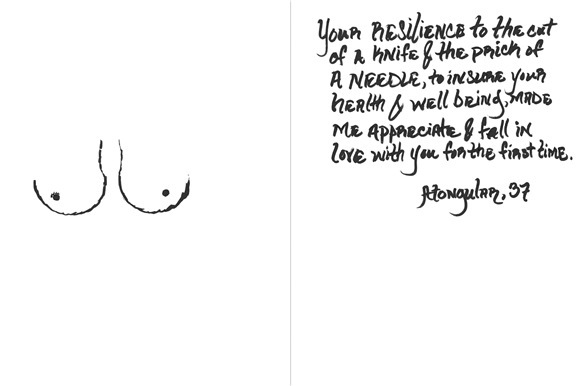 Your Resilience to the cut
of a knife & the prick of
A NEEDLE, to insure your
health & well being, MADE
ME Appreciate & fall in
love with you for the first time.
Atongular, 37